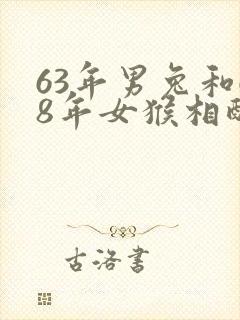 63年男兔和
8年女猴相
古洛书